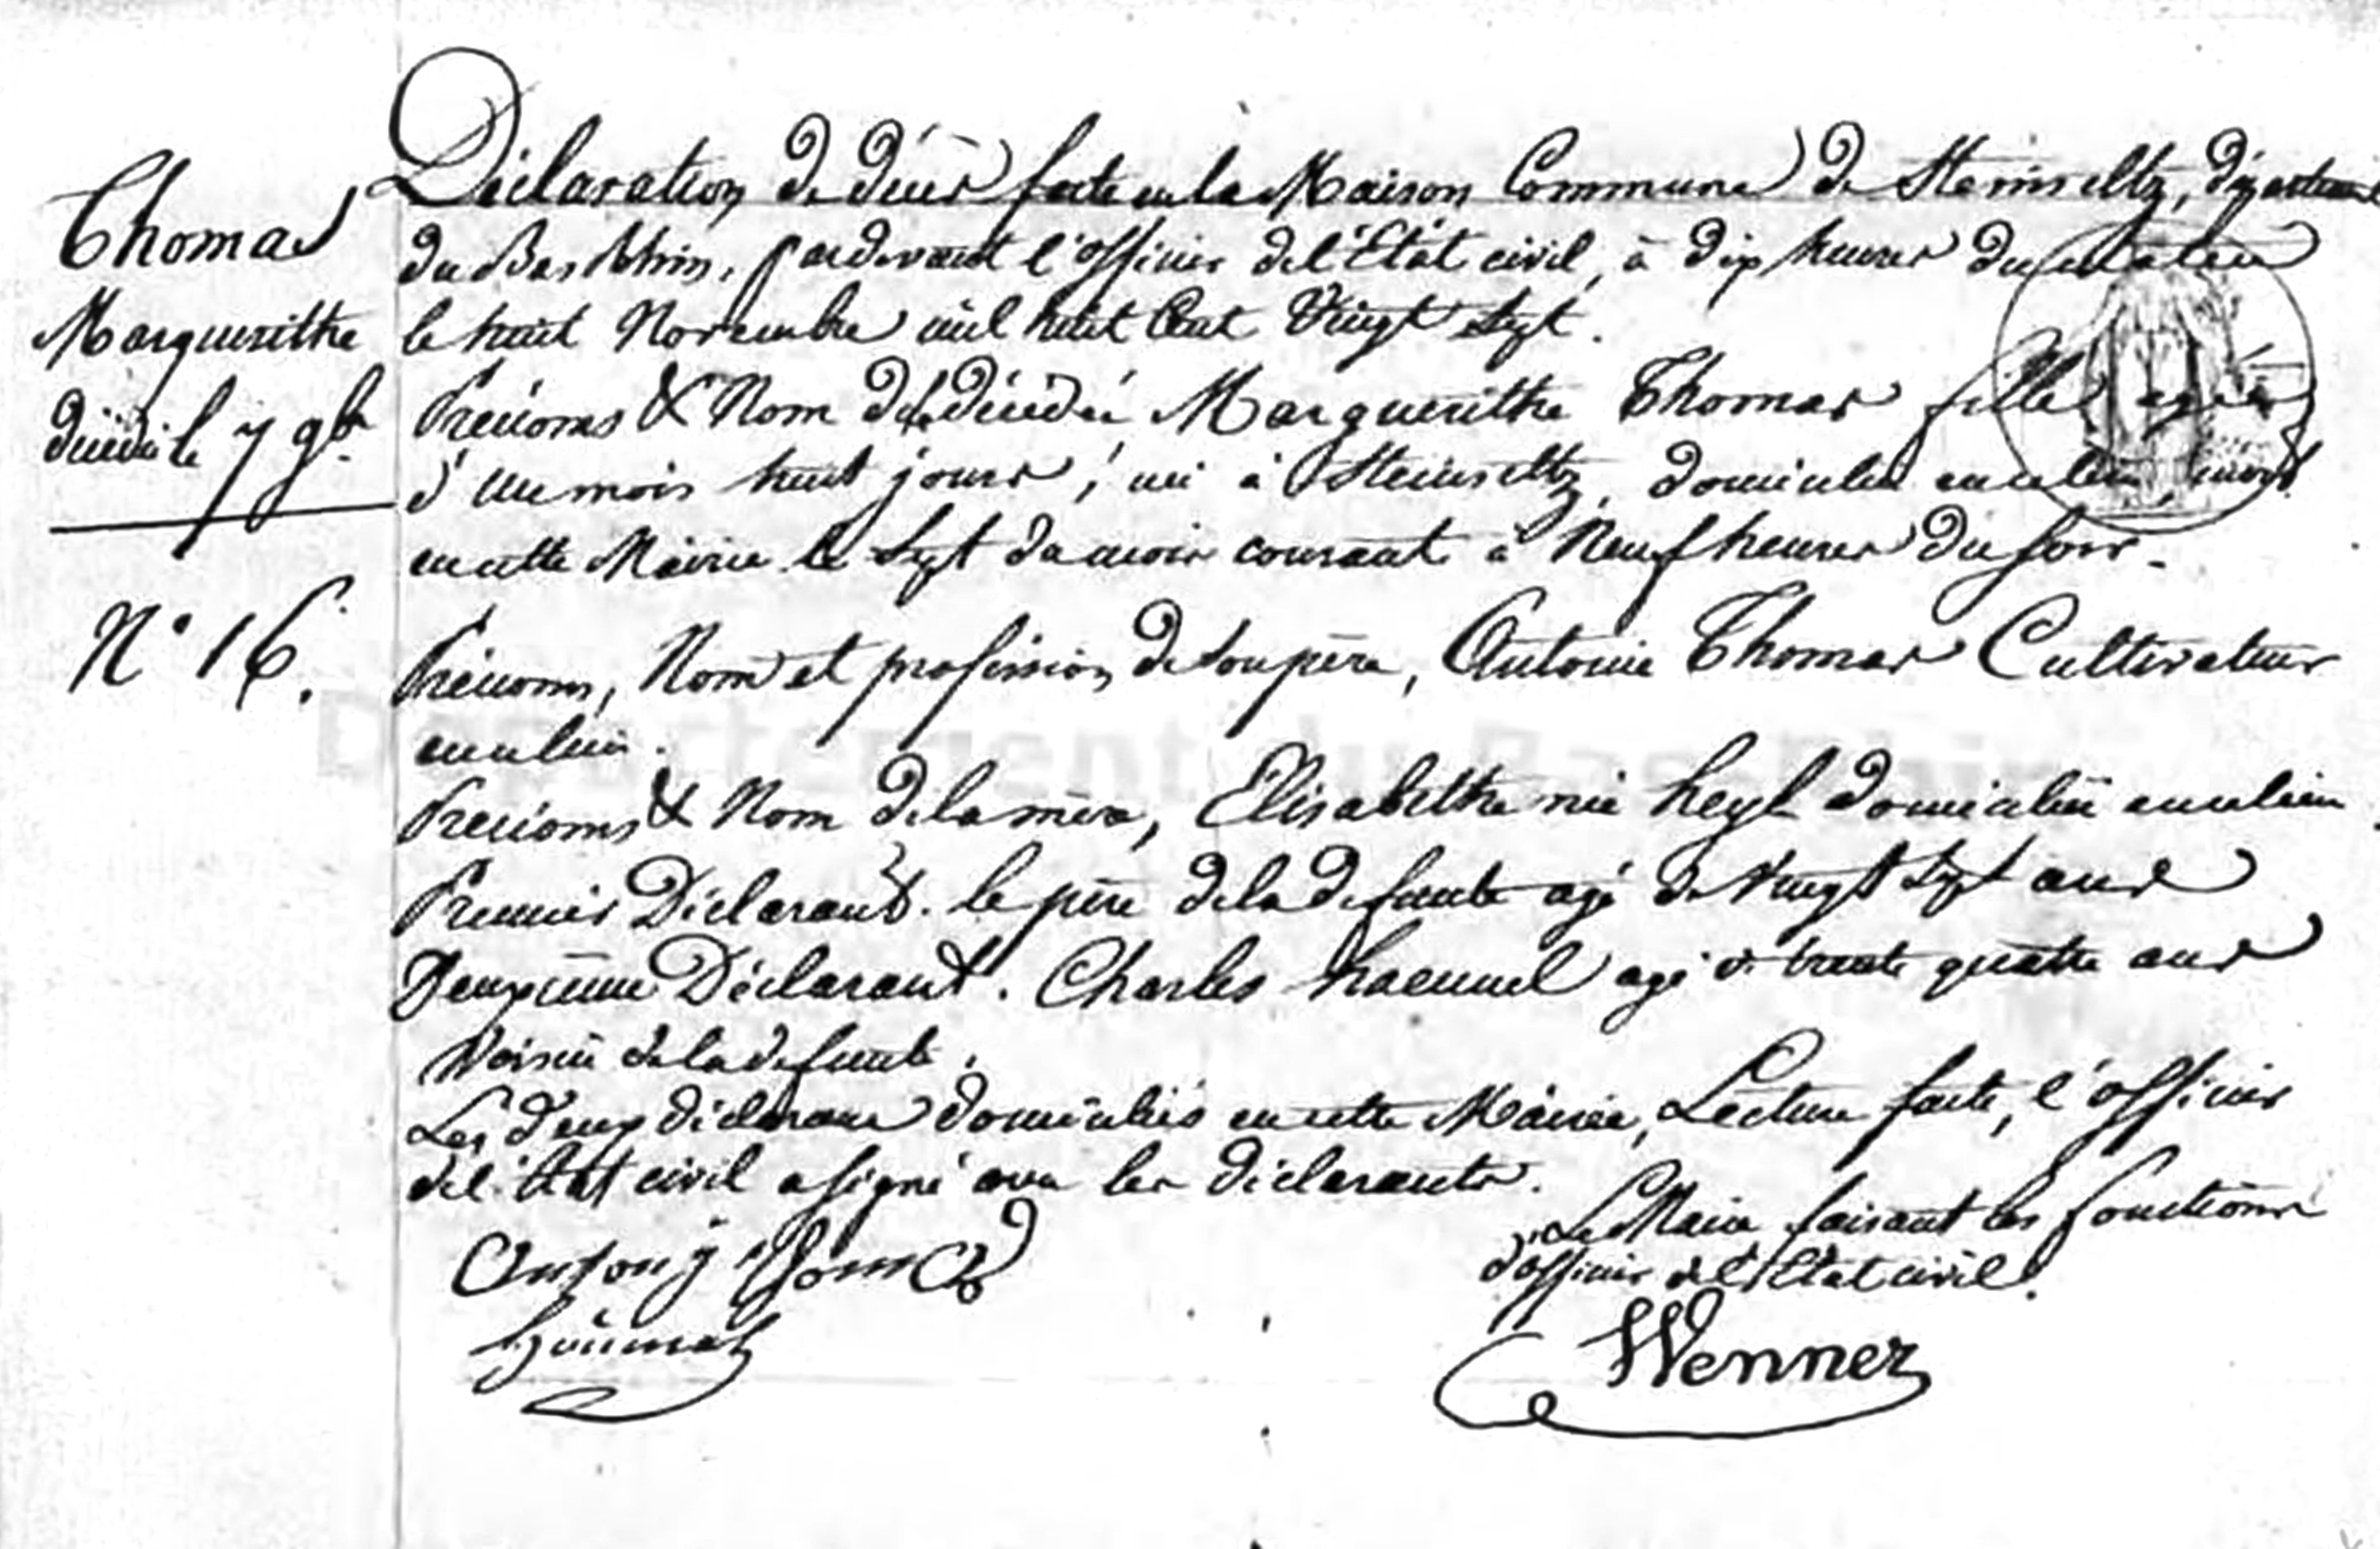 Thomas
Marguerithe
décédée le 7 9br
N° 16.
Déclaration de décès faite en la Maison Commune de Steinseltz, département
du Bas Rhin, pardevant l'officier de l'Etat civil, à dix heures du matin
le huit Novembre mil huit Cent Vingt Sept.
Prénoms & Nom de la décédée Marguerithe Thomas fille agée
d'un mois huit jours, née à Steinseltz, domiciliée en ce lieu, morte
en cette Mairie le Sept du mois courant à Neuf heures du soir.
Prénoms, Nom et profession de son père, Antoine Thomas Cultivateur
en ce lieu.
Prénoms & Nom de la mère, Elisabethe née heyl domiciliée en ce lieu.
Premier Déclarant. le père de la defunte agé de Vingt Sept ans
Deuxième Déclarant. Charles haennel agé de trente quatre ans
Voisin de la defunte.
Les deux déclarans domiciliés en cette Mairie, Lecture faite, l'officier
de l'état civil a signé avec les déclarants.
Le Maire faisant les fonctions
d'officier de l'Etat civil.
Antony Thomas
Wenner
Département du Bas-Rhin